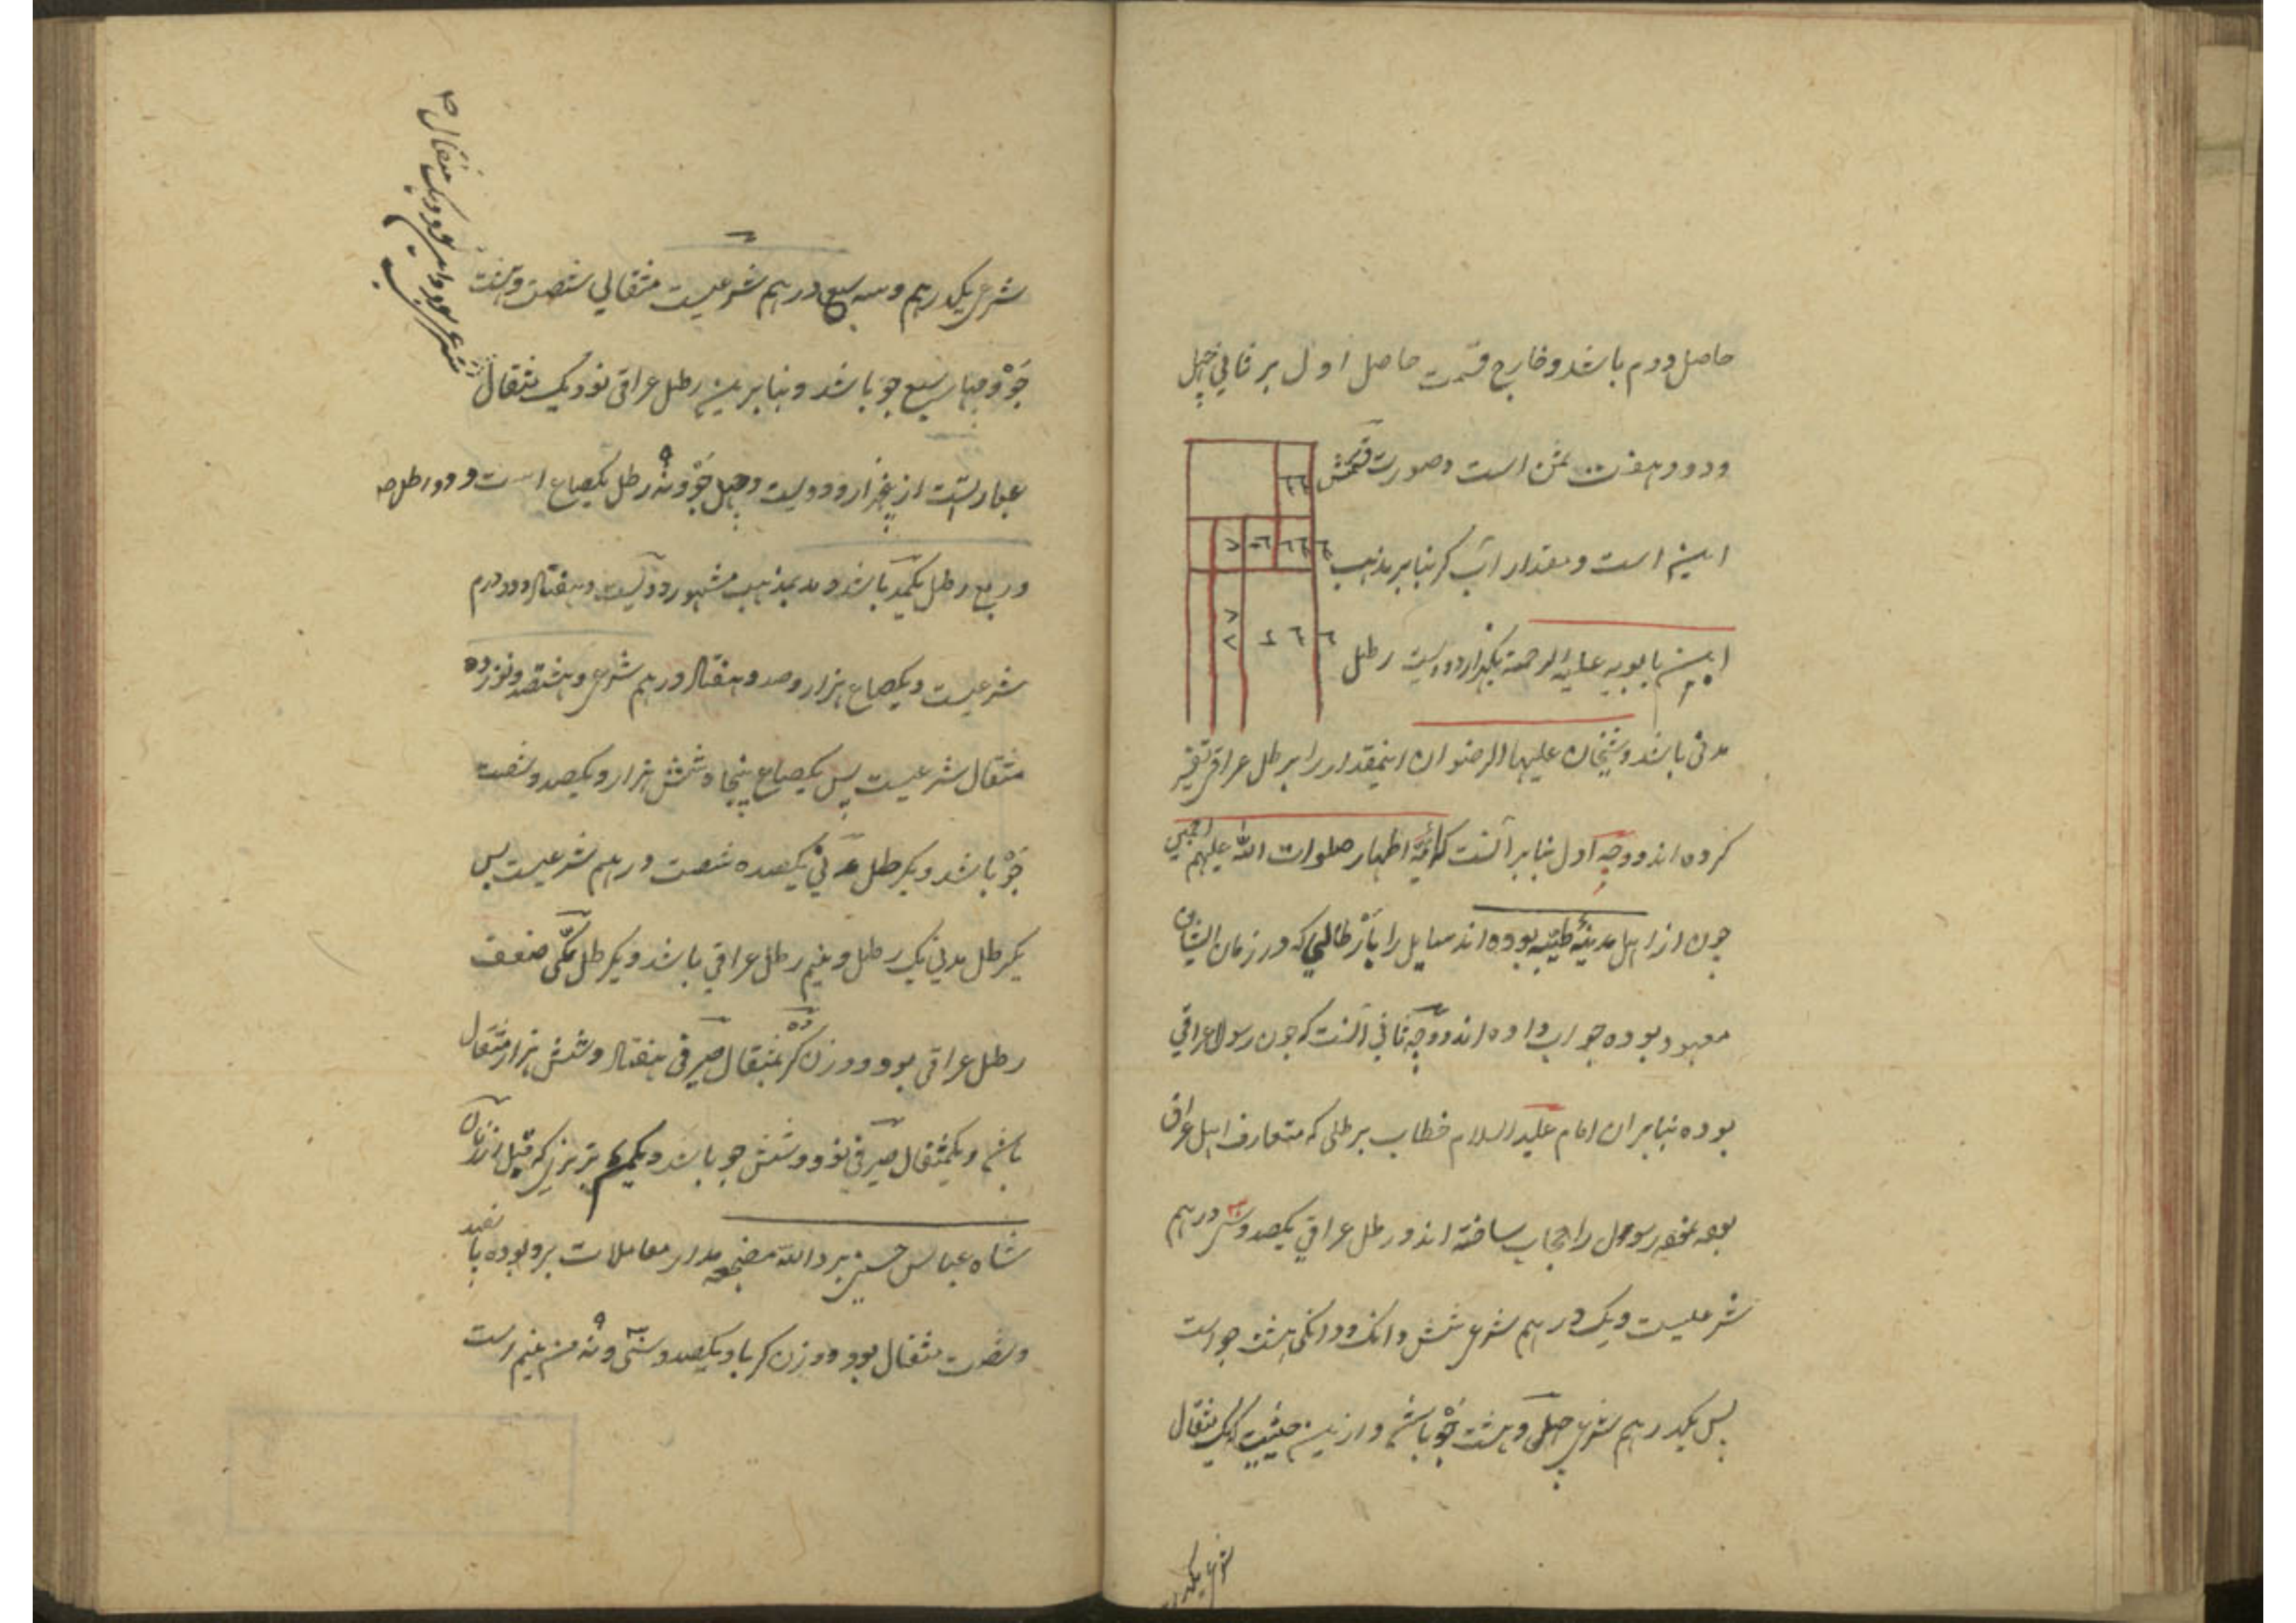 حاصل دوم باشد و خارج قسمت حاصل اول بر ثانی چهل
و دو و هفت ثمن است و صورت قسمتش
این است و مقدار آب کر بنابر مذهب
ابن بابویه علیه الرحمة یکهزار و دویست رطل
مدنی باشد و شیخان علیهما الرضوان اینمقدار را برطل عراقی تفسیر
کرده اند و وجه اول بنابر آنست که ائمه اطهار صلوات الله علیهم اجمعین
چون از اهل مدینه طیبه بوده اند سایل را بارطالی که در زمان ایشان
معهود بوده جواب داده اند و وجه ثانی آنست که چون رسول عراقی
بوده بنابران امام علیه السلام خطاب برطلی که متعارف اهل عراق
بوده رسول را مجاب ساخته اند و رطل عراقی یکصد و سی درهم
شرعیست و یک درهم شرعی شش دانک و دانکی هشت جو است
پس یکدرهم شرعی چهل و هشت جو باشد و ازین حیثیت که یک مثقال
شرعی یکدر
شرعی یکدرهم و سه سبع درهم شرعیست مثقالی شصت و هشت
جو و چهار سبع جو باشد و بنابرین رطل عراقی نود و یک مثقال
شرعی بود و
عبارتست از و دویست و چهل جو و نه رطل یکصاع است و دو رطل
و ربع رطل یکمد باشد و مد بمذهب مشهور دویست و هفتاد و دو درم
شرعیست و یکصاع هزار و صد و هفتاد درهم شرعی و هشتصد و نوزده
مثقال شرعیست پس یکصاع پنجاه و شش هزار و یکصد و شصت
جو باشد و یکرطل مدنی یکصد و شصت درهم شرعیست پس
یکرطل مدنی یک رطل و نیم رطل عراقی باشد و یکرطل مکی ضعف
رطل عراقی بود و وزن کر بمثقال صیرفی هفتاد و شش هزار مثقال
باشد و یکمثقال صیرفی نود و شش جو باشد و یکمن تبریزی که قبل از زمان
شاه عباس حسینی برد الله مضجعه مدار معاملات برو بوده پانصد
و شصت مثقال بود و وزن کر باو یکصد و سی و نه من نیم است